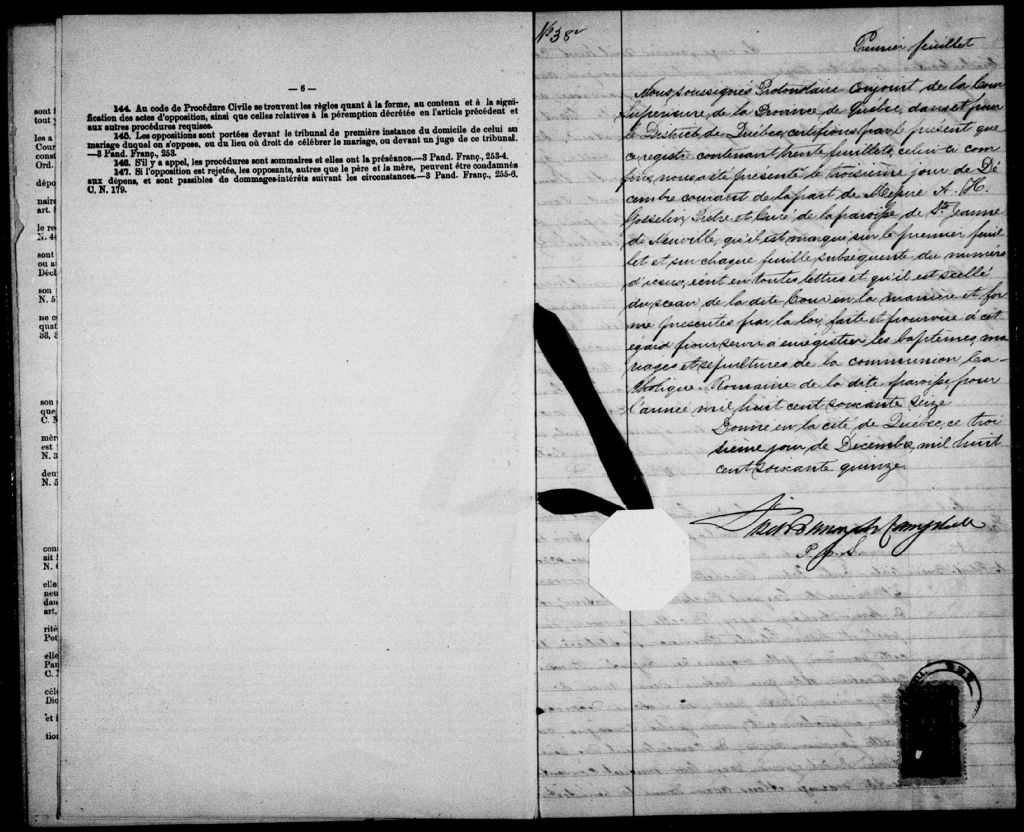 — 6 —
144. Au code de Procédure Civile se trouvent les règles quant à la forme, au contenu et à la signi-
fication des actes d'opposition, ainsi que celles relatives à la péremption décrétée en l'article précédent et
aux autres procédures requises.
145. Les oppositions sont portées devant le tribunal de première instance du domicile de celui au
mariage duquel on s'oppose, ou du lieu où droit de célébrer le mariage, ou devant un juge de ce tribunal.
—3 Pand. Franç., 253.
146. S'il y a appel, les procédures sont sommaires et elles ont la préséance.—3 Pand. Franç., 253-4.
147. Si l'opposition est rejetée, les opposants, autres que le père et la mère, peuvent être condamnés
aux dépens, et sont passibles de dommages-intérêts suivant les circonstances.—3 Pand. Franç., 255-6.
C. N. 179.
sont
tout
les a
Cour
const
Ord.
dépo
naire
art.
le re
N. 4
sont
ou a
Décl
son
N. 5
ne c
quat
son
que
C. N
mère
est
N. 3
deu
N. 5
con
ait
N.
elle
neu
dan
art.
rité
Pot
elle
Par
C.
cél
Dic
et
tion
No 38
Premier feuillet
Nous, soussignés Protonotaire Conjoint de la Cour
Supérieure de la Province de Québec, dans et pour
le District de Québec, certifions par le présent que
ce registre contenant trente feuillets, celui-ci com
pris, nous a été présenté le troisième jour de Dé
cembre courant de la part de Messire A. H.
Gosselin, Prêtre et Curé de la paroisse de Ste Jeanne
de Neuville, qu'il est marqué sur le premier feuil
let et sur chaque feuille subséquente du numéro
d'iceux, écrit en toutes lettres et qu'il est scellé
du sceau de la dite Cour en la manière et for
me prescrites par la loi, faite et pourvue à cet
égard pour servir à enregistrer les baptêmes, ma
riages et sépultures de la communion Ca-
tholique Romaine de la dite paroisse, pour
l'année mil huit cent soixante seize
Donné en la cité de Québec, ce troi
sième jour de Décembre, mil huit
cent soixante quinze.
Campbell
P. C. S.